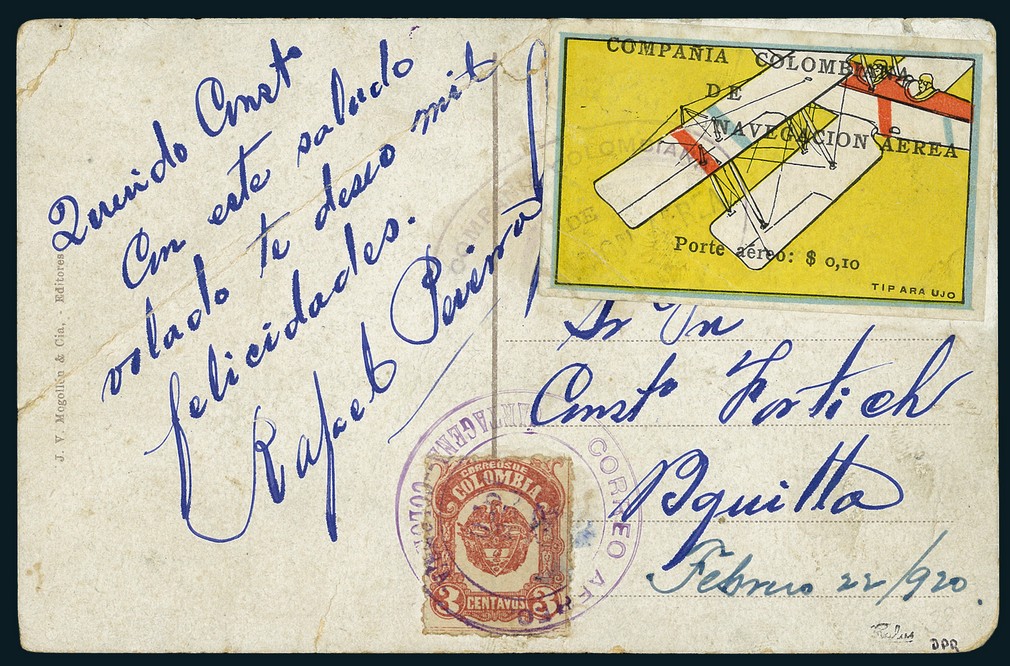 Querido Const
Con este saludo
volado te deseo mil
felicidades.
Rafael
J. V. Mogollón & Cia, - Editores
COMPAÑIA COLOMBIANA
DE
NAVEGACION AÉREA
Porte aéreo: $ 0,10
TIP ARAUJO
Sr Dn
Const° Fortich
Bquilla
Febrero 22/920.
CORREOS DE
COLOMBIA
3 CENTAVOS 3
CORREO AEREO
CARTAGENA
DPR